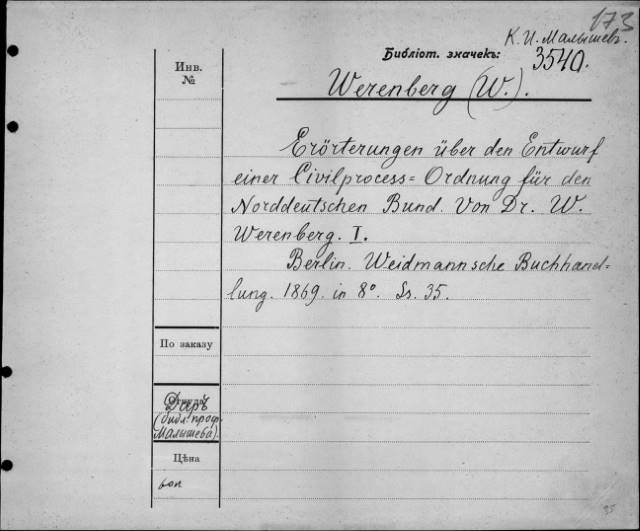 173
К. И. Малышевъ.
Библіот. значекъ:
3540.
Инв.
№
Werenberg (W.).
Erörterungen über den Entwurf
einer Civilprocess=Ordnung für den
Norddeutschen Bund. Von Dr. W.
Werenberg. I.
Berlin. Weidmannsche Buchhand=
lung. 1869. in 8°. Ss. 35.
По заказу
Даръ
(библ. проф.
Малышева).
Цѣна